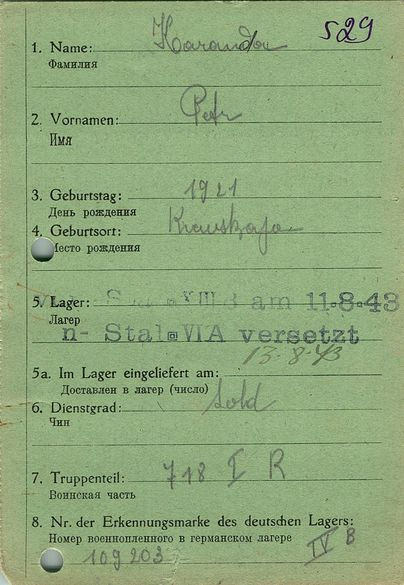 529
1. Name: Karanda
Фамилия
2. Vornamen: Petr
Имя
3. Geburtstag: 1921
День рождения
4. Geburtsort:
Место рождения
5. Lager: VIII B am 11.8.43
Лагер
n- Stal VIA versetzt
13.8.43
5a. Im Lager eingeliefert am:
Доставлен в лагер (число)
6. Dienstgrad: Sold
Чин
7. Truppenteil: 718 I R
Воинская часть
8. Nr. der Erkennungsmarke des deutschen Lagers:
Номер военнопленного в германском лагере
109203 IV B